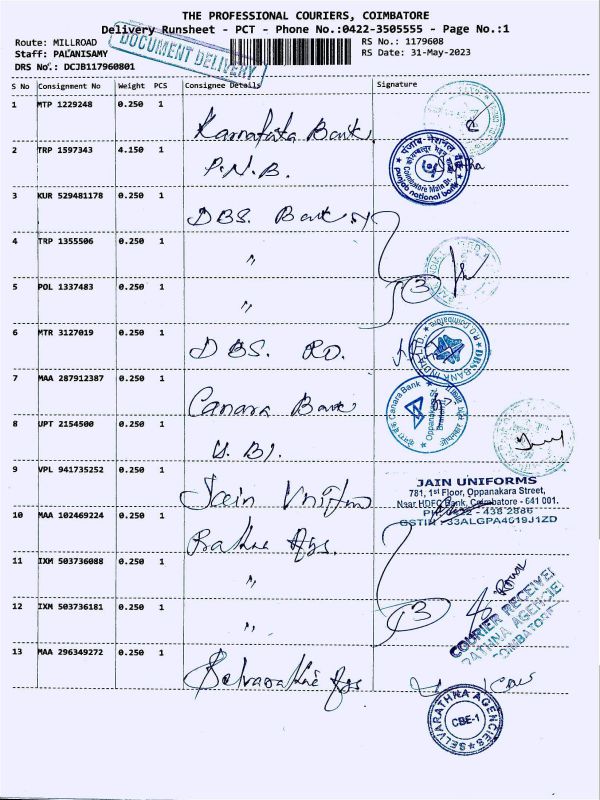 THE PROFESSIONAL COURIERS, COIMBATORE
Delivery Runsheet - PCT - Phone No.:0422-3505555 - Page No.:1
Route: MILLROAD
RS No.: 1179608
Staff: PALANISAMY
RS Date: 31-May-2023
DRS No.: DCJB117960801
DOCUMENT DELIVERY
S No Consignment No Weight PCS Consignee Details Signature
1 MTP 1229248 0.250 1 Karnataka Bank
2 TRP 1597343 4.150 1 P.N.B.
पंजाब नैशनल बैंक
Coimbatore Main Br.
punjab national bank
3 KUR 529481178 0.250 1 DBS. Bank
4 TRP 1355506 0.250 1 "
5 POL 1337483 0.250 1 " 3
6 MTR 3127019 0.250 1 DBS. RO.
DBS BANK INDIA LTD.
R.O Coimbatore
7 MAA 287912387 0.250 1 Canara Bank
Canara Bank
Oppanakara St.
Branch
8 UPT 2154500 0.250 1 U.BI.
9 VPL 941735252 0.250 1 Jain Uniform
JAIN UNIFORMS
781, 1st Floor, Oppanakara Street,
Near HDFC Bank, Coimbatore - 641 001.
PH: 0422 - 438 2886
GSTIN : 33ALGPA4619J1ZD
10 MAA 102469224 0.250 1 Rathne Ags.
11 IXM 503736088 0.250 1 "
12 IXM 503736181 0.250 1 " 3
COURIER RECEIVED
RATHNA AGENCIES
COIMBATORE
13 MAA 296349272 0.250 1 Selvarathne Ags
SELVARATHNA AGENCIES
CBE-1